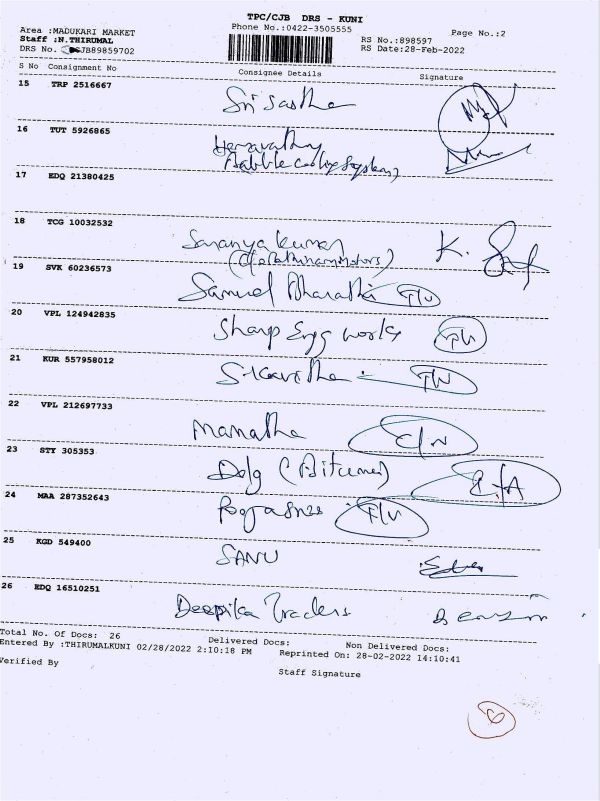 TPC/CJB DRS - KUNI
Area :MADUKARI MARKET Phone No.:0422-3505555 Page No.:2
Staff :N.THIRUMAL RS No.:898597
DRS No. JB89859702 RS Date:28-Feb-2022
S No Consignment No Consignee Details Signature
15 TRP 2516667 Sri Sastha
16 TUT 5926865
17 EDQ 21380425
18 TCG 10032532 Saranya Kumar K.
19 SVK 60236573 Samuel Bharathi
20 VPL 124942835 Sharp Engg works
21 KUR 557958012 S. Kavitha
22 VPL 212697733 Mamatha
23 STY 305353
24 MAA 287352643
25 KGD 549400 SANU
26 EDQ 16510251 Deepika Traders
Total No. Of Docs: 26 Delivered Docs: Non Delivered Docs:
Entered By :THIRUMALKUNI 02/28/2022 2:10:18 PM Reprinted On: 28-02-2022 14:10:41
Verified By Staff Signature